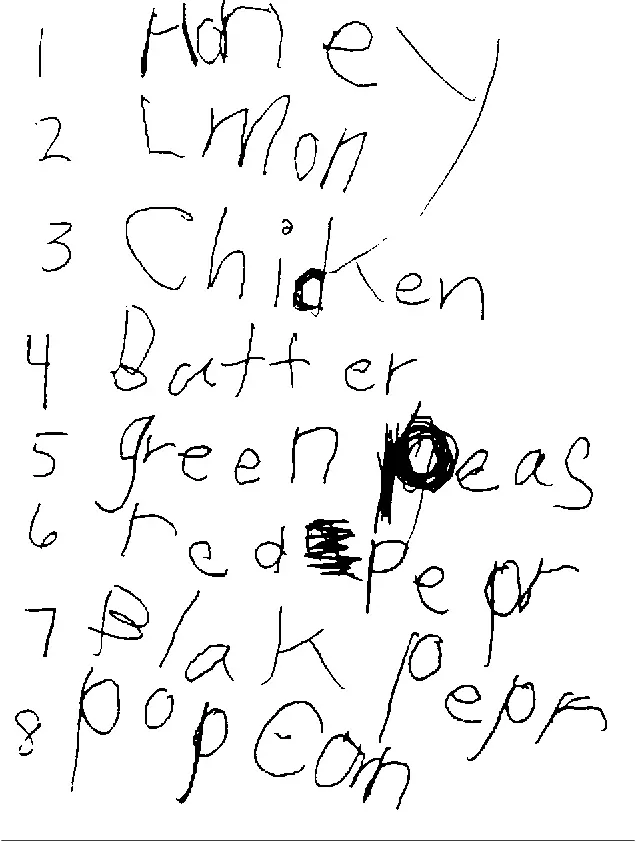 1 Honey
2 Lmon
3 Chicken
4 Batter
5 green peas
6 red pepr
7 Blak pepr
8 popcorn